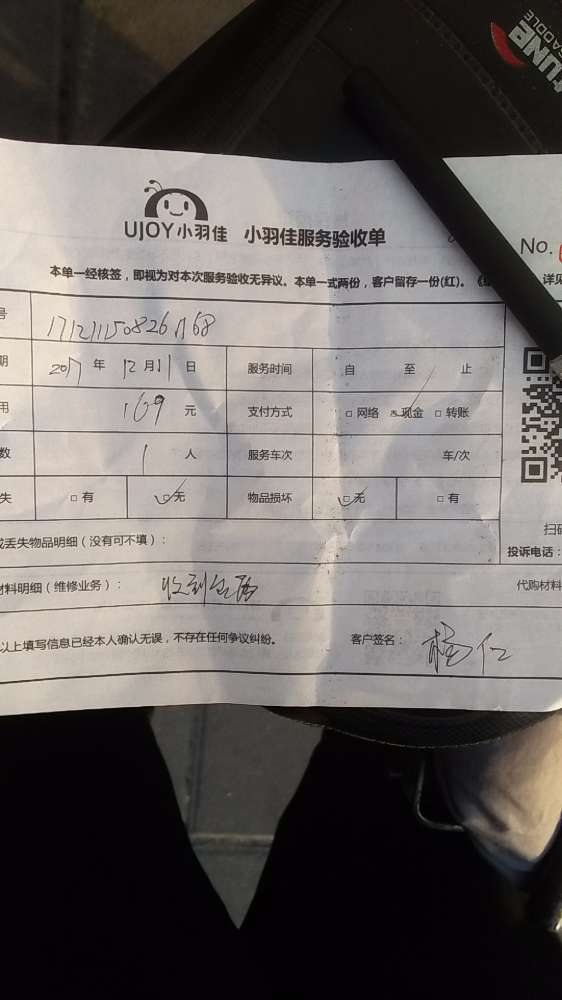 TUNE
SADDLE
UJOY小羽佳 小羽佳服务验收单
No.
本单一经核签，即视为对本次服务验收无异议。本单一式两份，客户留存一份(红)。 详见
号
期 2017 年 12 月 11 日 服务时间 自 至 止
用 169 元 支付方式 □ 网络 □ 现金 □ 转账
数 1 人 服务车次 车/次
失 □ 有 □ 无 物品损坏 □ 无 □ 有
或丢失物品明细（没有可不填）：
扫码
投诉电话：
材料明细（维修业务）： 收到 代购材料
以上填写信息已经本人确认无误，不存在任何争议纠纷。 客户签名： 杨仁